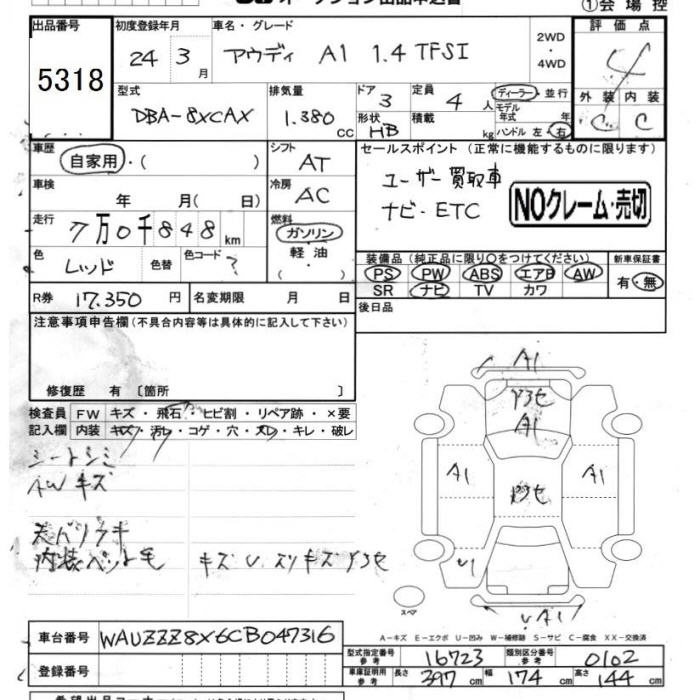 ①会場控
出品番号
5318
初度登録年月
24 3月
車名・グレード
アウディ A1 1.4 TFSI
2WD
・
4WD
評価点
4
外装 内装
C C
型式
DBA-8XCAX
排気量
1.380cc
ドア
3
形状
HB
定員
4人
積載
kg
ディーラー・並行
モデル年式 年
ハンドル 左・右
車歴
自家用・( )
シフト
AT
車検
年 月( 日)
冷房
AC
走行
7万0千848km
燃料
ガソリン
軽油
・( )
色
レッド
色替
色コード
?
R券 17.350円
名変期限 月 日
セールスポイント(正常に機能するものに限ります)
ユーザー買取車
ナビ・ETC
NOクレーム・売切
装備品(純正品に限り○をつけてください)
PS PW ABS エアB AW
SR ナビ TV カワ
新車保証書
有・無
後日品
注意事項申告欄(不具合内容等は具体的に記入して下さい)
修復歴 有〔箇所 〕
検査員記入欄
FW キズ・飛石・ヒビ割・リペア跡・×要
内装 キズ・汚レ・コゲ・穴・スレ・キレ・破レ
シートシミ
AWキズ
内装ペット毛
A1
A1
A1
A1
U1
UA1
スペア
A-キズ E-エクボ U-凹み W-補修跡 S-サビ C-腐食 XX-交換済
車台番号 WAUZZZ8X6CB047316
登録番号
型式指定番号参考 16723
類別区分番号参考 0102
車庫証明用参考 長さ 397cm 幅 174cm 高さ 144cm